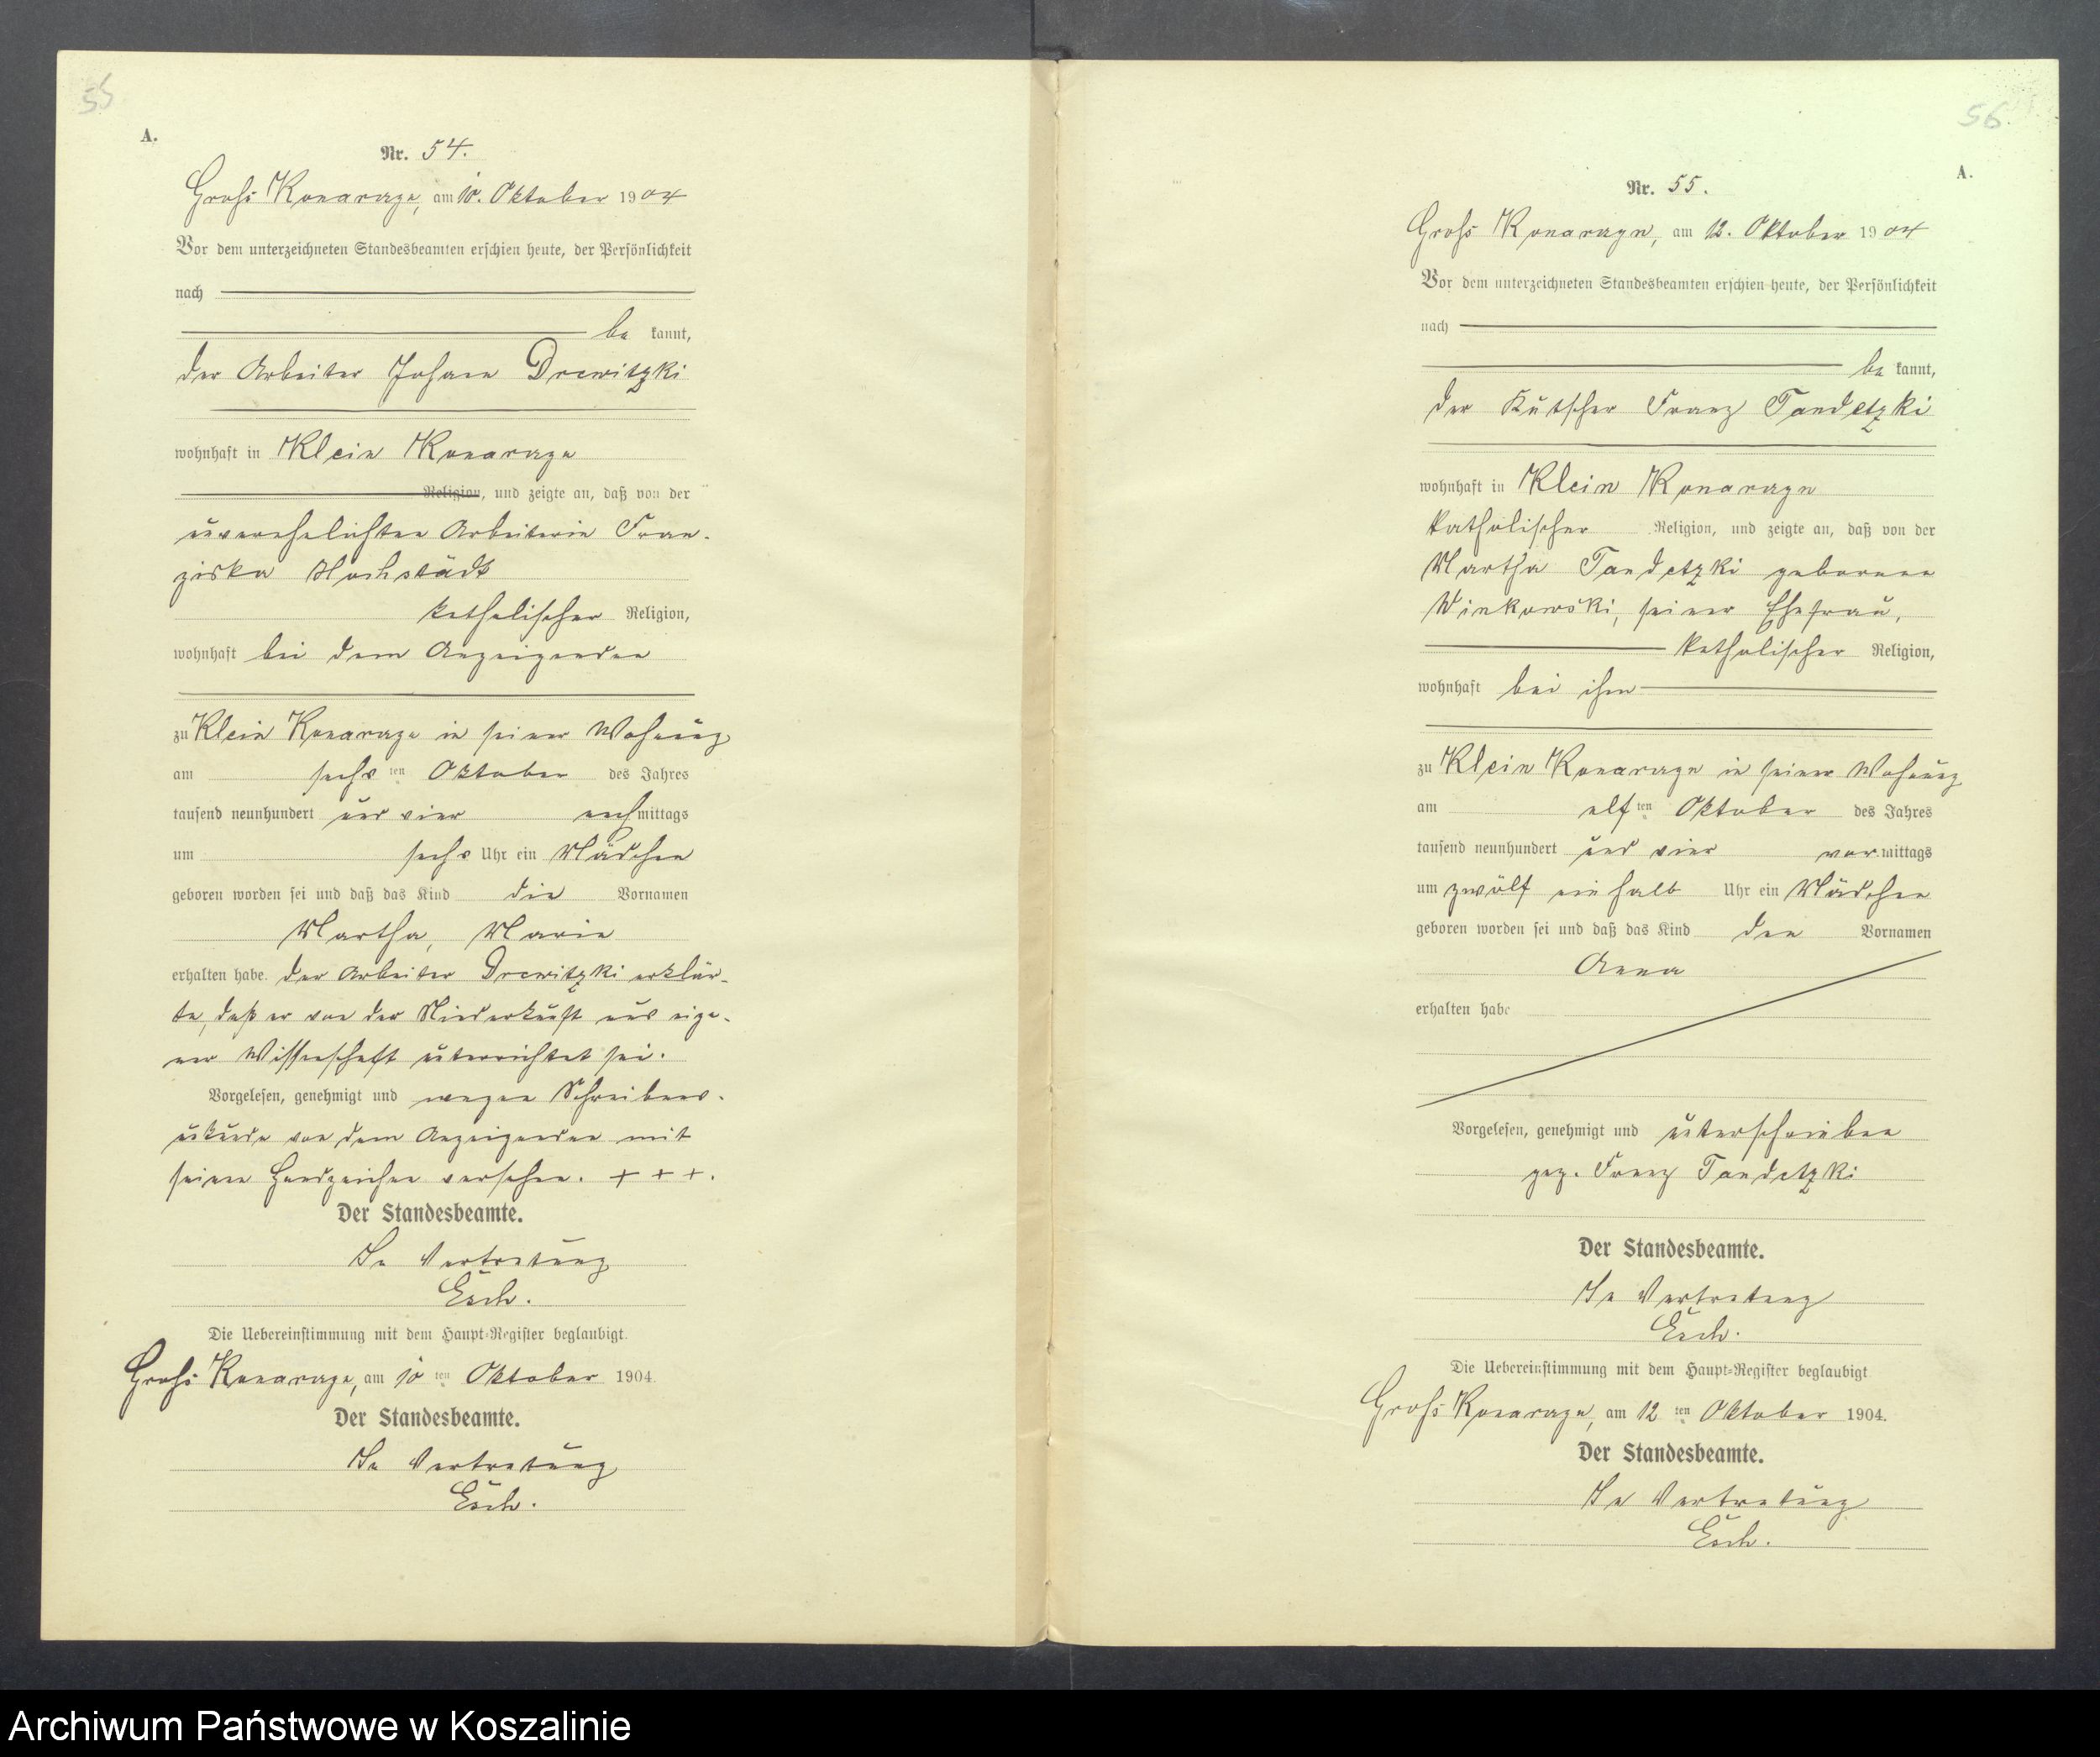 55
A.
Nr. 54.
Groß Konarczyn, am 10. Oktober 1904
Vor dem unterzeichneten Standesbeamten erschien heute, der Persönlichkeit
nach
be kannt,
der Arbeiter Johann Drewitzki
wohnhaft in Klein Konarczyn
Religion, und zeigte an, daß von der
unverehelichten Arbeiterin Fran-
ziska Hochstädt
katholischer Religion,
wohnhaft bei dem Anzeigenden
zu Klein Konarczyn in seiner Wohnung
am sechsten Oktober des Jahres
tausend neunhundert und vier nachmittags
um sechs Uhr ein Mädchen
geboren worden sei und daß das Kind die Vornamen
Martha, Marie
erhalten habe. der Arbeiter Drewitzki erklär-
te, daß er von der Niederkunft aus eige-
ner Wissenschaft unterrichtet sei.
Vorgelesen, genehmigt und wegen Schreibens-
unkunde von dem Anzeigenden mit
seinen Handzeichen versehen. + + +.
Der Standesbeamte.
In Vertretung
Esch.
Die Uebereinstimmung mit dem Haupt-Register beglaubigt.
Groß Konarczyn, am 10ten Oktober 1904.
Der Standesbeamte.
In Vertretung
Esch.
56
A.
Nr. 55.
Groß Konarczyn, am 12. Oktober 1904
Vor dem unterzeichneten Standesbeamten erschien heute, der Persönlichkeit
nach
be kannt,
der Kutscher Franz Tandetzki
wohnhaft in Klein Konarczyn
katholischer Religion, und zeigte an, daß von der
Martha Tandetzki geborenen
Winkowski, seiner Ehefrau,
katholischer Religion,
wohnhaft bei ihm
zu Klein Konarczyn in seiner Wohnung
am elften Oktober des Jahres
tausend neunhundert und vier vormittags
um zwölf einhalb Uhr ein Mädchen
geboren worden sei und daß das Kind den Vornamen
Anna
erhalten habe
Vorgelesen, genehmigt und unterschrieben
gez. Franz Tandetzki
Der Standesbeamte.
In Vertretung
Esch.
Die Uebereinstimmung mit dem Haupt-Register beglaubigt
Groß Konarczyn, am 12ten Oktober 1904.
Der Standesbeamte.
In Vertretung
Esch.
Archiwum Państwowe w Koszalinie